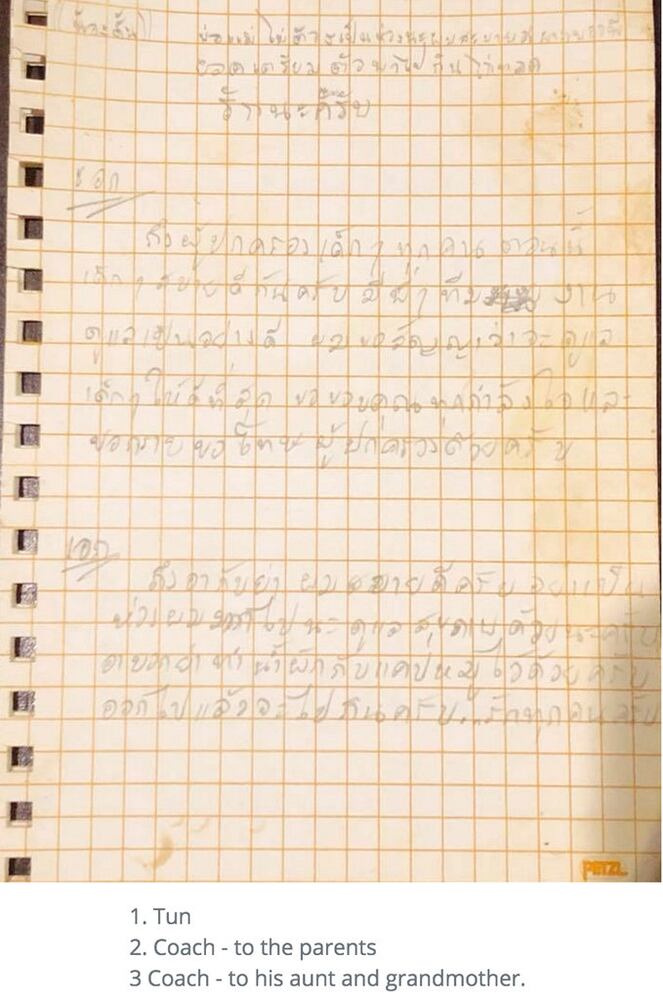 พ่อแม่ ไม่ต้องเป็นห่วงนะผมสบายดี ผมบอกพี่
ยอดเตรียมตัวพาไปกิน ไก่ทอด
รักนะครับ
เอก
ถึงผู้ปกครองเด็กๆ ทุกคน ตอนนี้
เด็กๆ สบายดีกันครับ มีพี่ๆ ทีม งาน
ดูแลเป็นอย่างดี ผมขอสัญญาว่าจะดูแล
เด็กๆให้ดีที่สุด ขอขอบคุณทุกกำลังใจและ
ขอกราบขอโทษผู้ปกครองด้วยครับ
เอก
ถึงอากับย่า ผมสบายดีครับ อย่าเป็น
ห่วงผมมากไปนะ ดูแลสุขภาพด้วยนะครับ
อาบอกย่าทำน้ำผักกับแคปหมูไว้ด้วยครับ
ออกไปแล้วจะไปกินครับ...รักทุกคนครับ
PETZL
1. Tun
2. Coach - to the parents
3 Coach - to his aunt and grandmother.